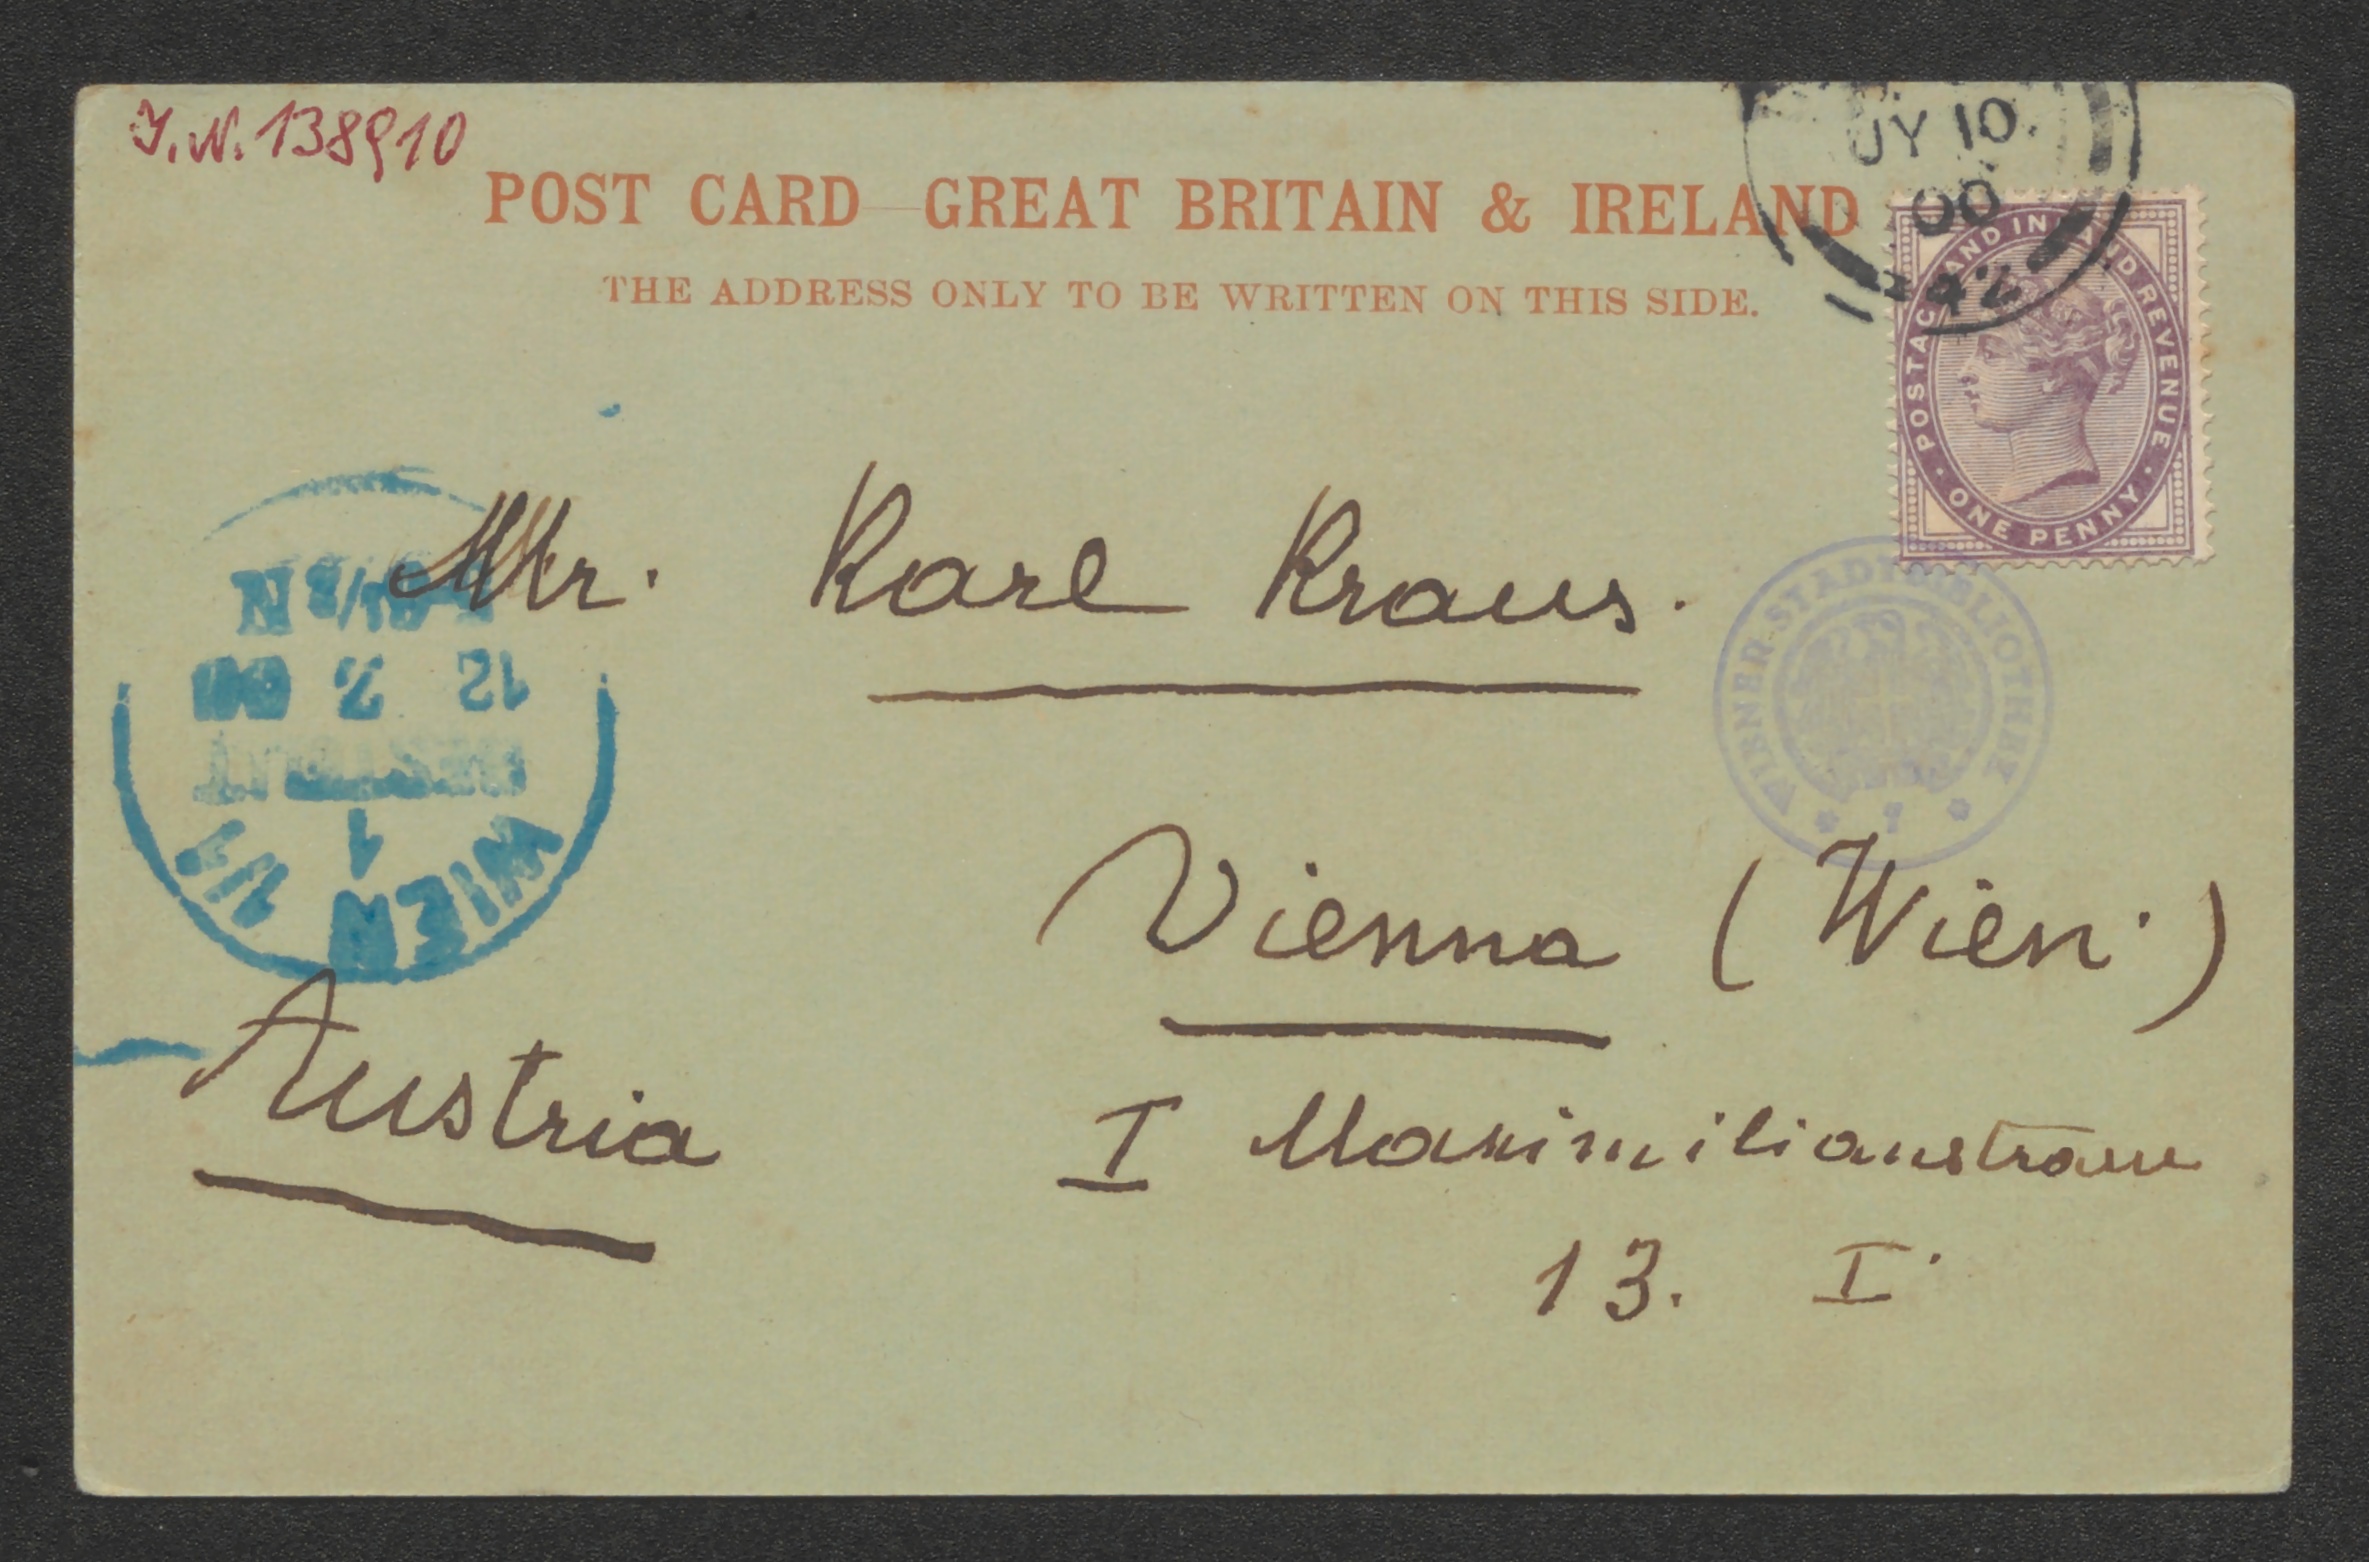 I.N. 138910
JY 10
00
42
POST CARD — GREAT BRITAIN & IRELAND
THE ADDRESS ONLY TO BE WRITTEN ON THIS SIDE.
POSTAGE AND INLAND REVENUE
ONE PENNY
Mr. Karl Kraus.
WIEN 1/1
1
BESTELLT
12 7 00
N
WIENER STADTBIBLIOTHEK
Vienna (Wien.)
Austria
I Maximilianstrasse
13. I.